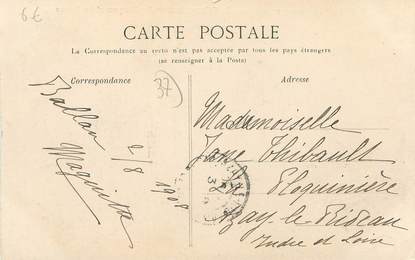 6€
CARTE POSTALE
La Correspondance au recto n'est pas acceptée par tous les pays étrangers
(se renseigner à la Poste)
Correspondance
37
Adresse
Ballan
2/8
1908
Mademoiselle
Jane Thibault
La Eloquinière
Azay-le-Rideau
Indre et Loire